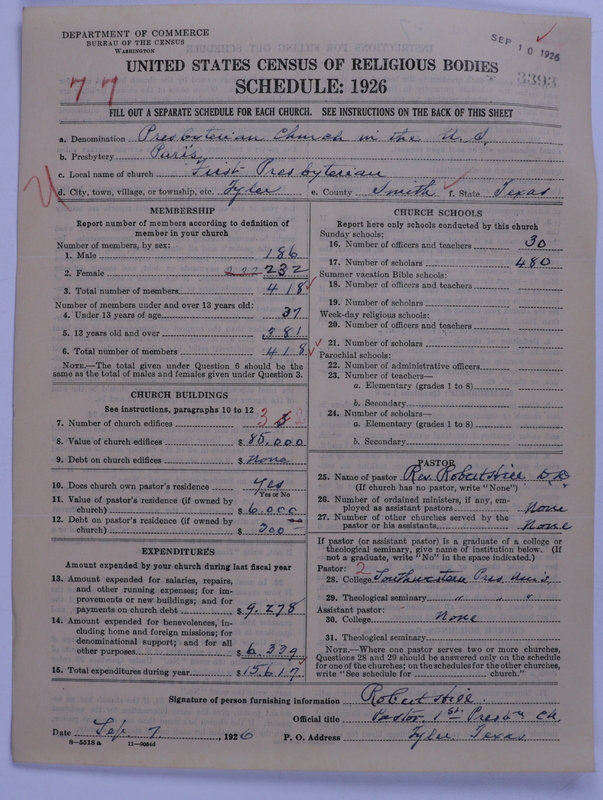 DEPARTMENT OF COMMERCE
BUREAU OF THE CENSUS
WASHINGTON
SEP 10 1926
UNITED STATES CENSUS OF RELIGIOUS BODIES
3393
77
SCHEDULE: 1926
FILL OUT A SEPARATE SCHEDULE FOR EACH CHURCH. SEE INSTRUCTIONS ON THE BACK OF THIS SHEET
a. Denomination Presbyterian Church in the U.S.
b. Presbytery Paris
c. Local name of church First Presbyterian
d. City, town, village, or township, etc. Tyler e. County Smith f. State Texas
MEMBERSHIP
Report number of members according to definition of
member in your church
Number of members, by sex:
1. Male 186
2. Female 232
3. Total number of members 418
Number of members under and over 13 years old:
4. Under 13 years of age 37
5. 13 years old and over 381
6. Total number of members 418
NOTE.—The total given under Question 6 should be
same as the total of males and females given under Question 3.
CHURCH BUILDINGS
See instructions, paragraphs 10 to 12
7. Number of church edifices 3
8. Value of church edifices $85,000
9. Debt on church edifices $None
10. Does church own pastor's residence Yes
Yes or No
11. Value of pastor's residence (if owned by
church) $6,000
12. Debt on pastor's residence (if owned by
church) $300
EXPENDITURES
Amount expended by your church during last fiscal year
13. Amount expended for salaries, repairs,
and other running expenses; for im-
provements or new buildings; and for
payments on church debt $9,278
14. Amount expended for benevolences, in-
cluding home and foreign missions; for
denominational support; and for all
other purposes $6,339
15. Total expenditures during year $15,617
CHURCH SCHOOLS
Report here only schools conducted by this church
Sunday schools:
16. Number of officers and teachers 30
17. Number of scholars 480
Summer vacation Bible schools:
18. Number of officers and teachers
19. Number of scholars
Week-day religious schools:
20. Number of officers and teachers
21. Number of scholars
Parochial schools:
22. Number of administrative officers
23. Number of teachers—
a. Elementary (grades 1 to 8)
b. Secondary
24. Number of scholars—
a. Elementary (grades 1 to 8)
b. Secondary
PASTOR
25. Name of pastor Rev. Robert Hill D.D.
(If church has no pastor, write "None")
26. Number of ordained ministers, if any, em-
ployed as assistant pastors None
27. Number of other churches served by the
pastor or his assistants None
If pastor (or assistant pastor) is a graduate of a college or
theological seminary, give name of institution below. (If
not a graduate, write "No" in the space indicated.)
Pastor: 2
28. College Southwestern Pres. Univ.
29. Theological seminary " " "
Assistant pastor:
30. College None
31. Theological seminary
NOTE.—Where one pastor serves two or more churches,
Questions 28 and 29 should be answered only on the schedule
for one of the churches; on the schedules for the other churches,
write "See schedule for church."
Signature of person furnishing information Robert Hill
Official title Pastor 1st Presbn Ch.
Date Sep. 7, 1926 P. O. Address Tyler Texas
8—5518a 11—9054d